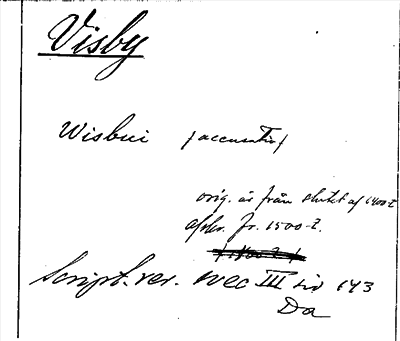 Visby
Wisbui /accusativ/
orig. är från slutet af 1400-t.
afskr. fr. 1500-t.
Script. rer. svec III sid 143
Da